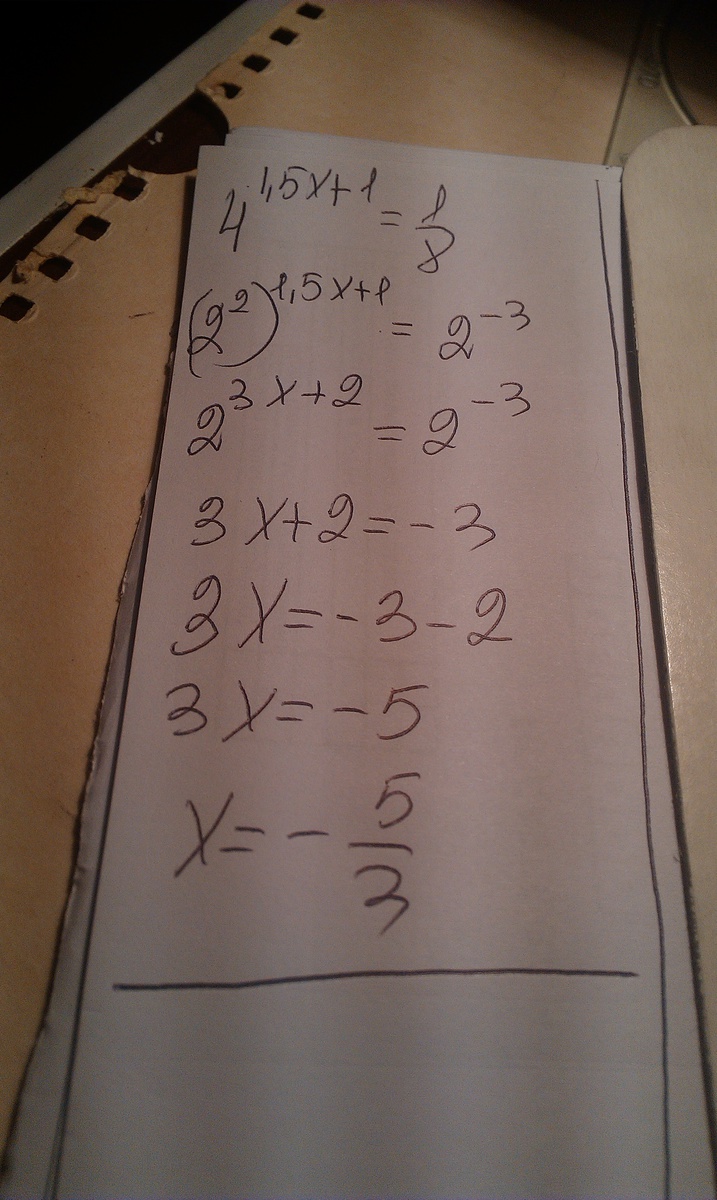 4^{1,5x+1} = \frac{1}{8}
(2^2)^{1,5x+1} = 2^{-3}
2^{3x+2} = 2^{-3}
3x+2=-3
3x=-3-2
3x=-5
x=-\frac{5}{3}